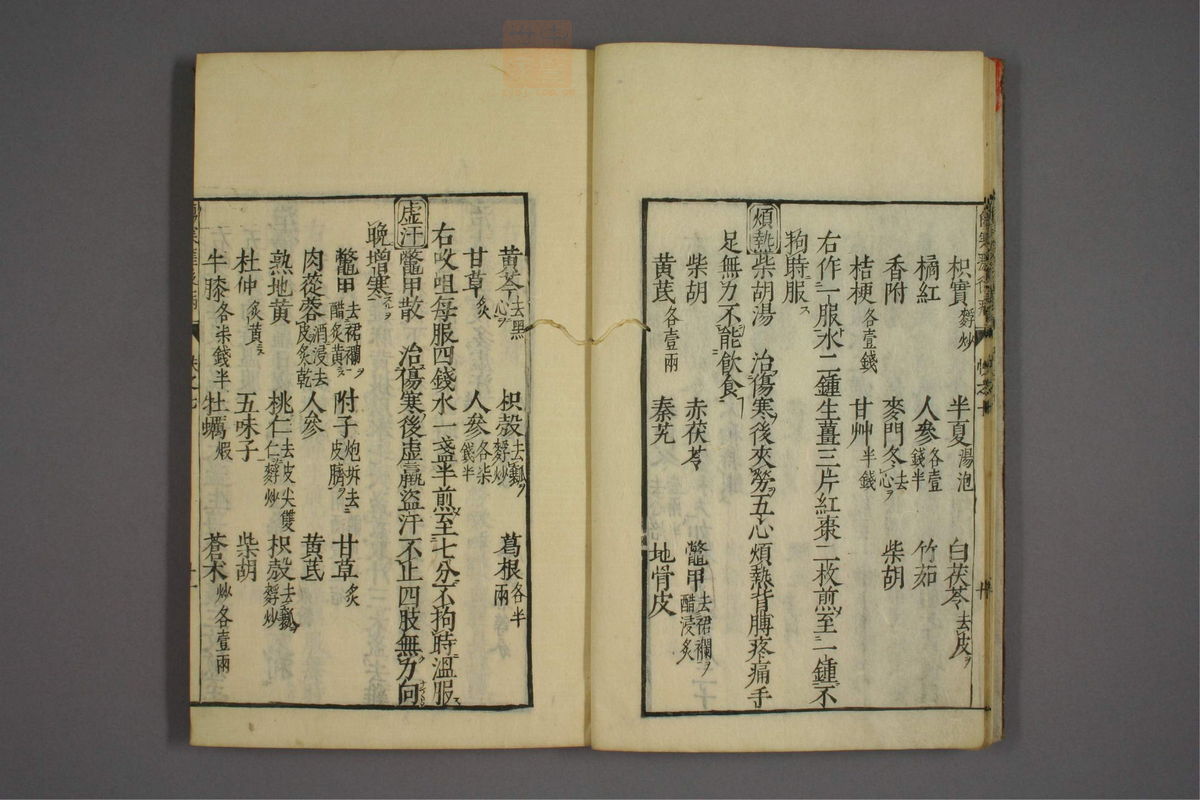 枳實麩炒 半夏湯泡 白茯苓去皮ヲ
橘紅 人參各壹錢半 竹茹
香附 麥門冬去心ヲ 柴胡
桔梗各壹錢 甘艸半錢
右作一服水二鍾生薑三片紅棗二枚煎至一鍾不
拘時服ス
煩熱 柴胡湯 治傷寒後夾勞五心煩熱背膊疼痛手
足無力不能飲食
柴胡 赤茯苓 鼈甲去裙襴ヲ醋浸炙
黄芪各壹兩 秦艽 地骨皮
黄芩去黑心ヲ 枳殼去瓤ヲ麩炒 葛根各半兩
甘草炙 人參各柒錢半
右㕮咀每服四錢水一盞半煎至七分不拘時溫服ス
虛汗 鼈甲散 治傷寒後虛羸盜汗不止四肢無力向
晩增寒
鼈甲去裙襴ヲ醋炙黄ス 附子炮拆去皮臍ヲ 甘草炙
肉蓯蓉酒浸去皮炙乾 人參 黄芪
熟地黄 桃仁去皮尖雙仁麩炒 枳殼去瓤麩炒
杜仲炙黄ス 五味子 柴胡
牛膝各柒錢半 牡蠣煆 蒼术炒各壹兩